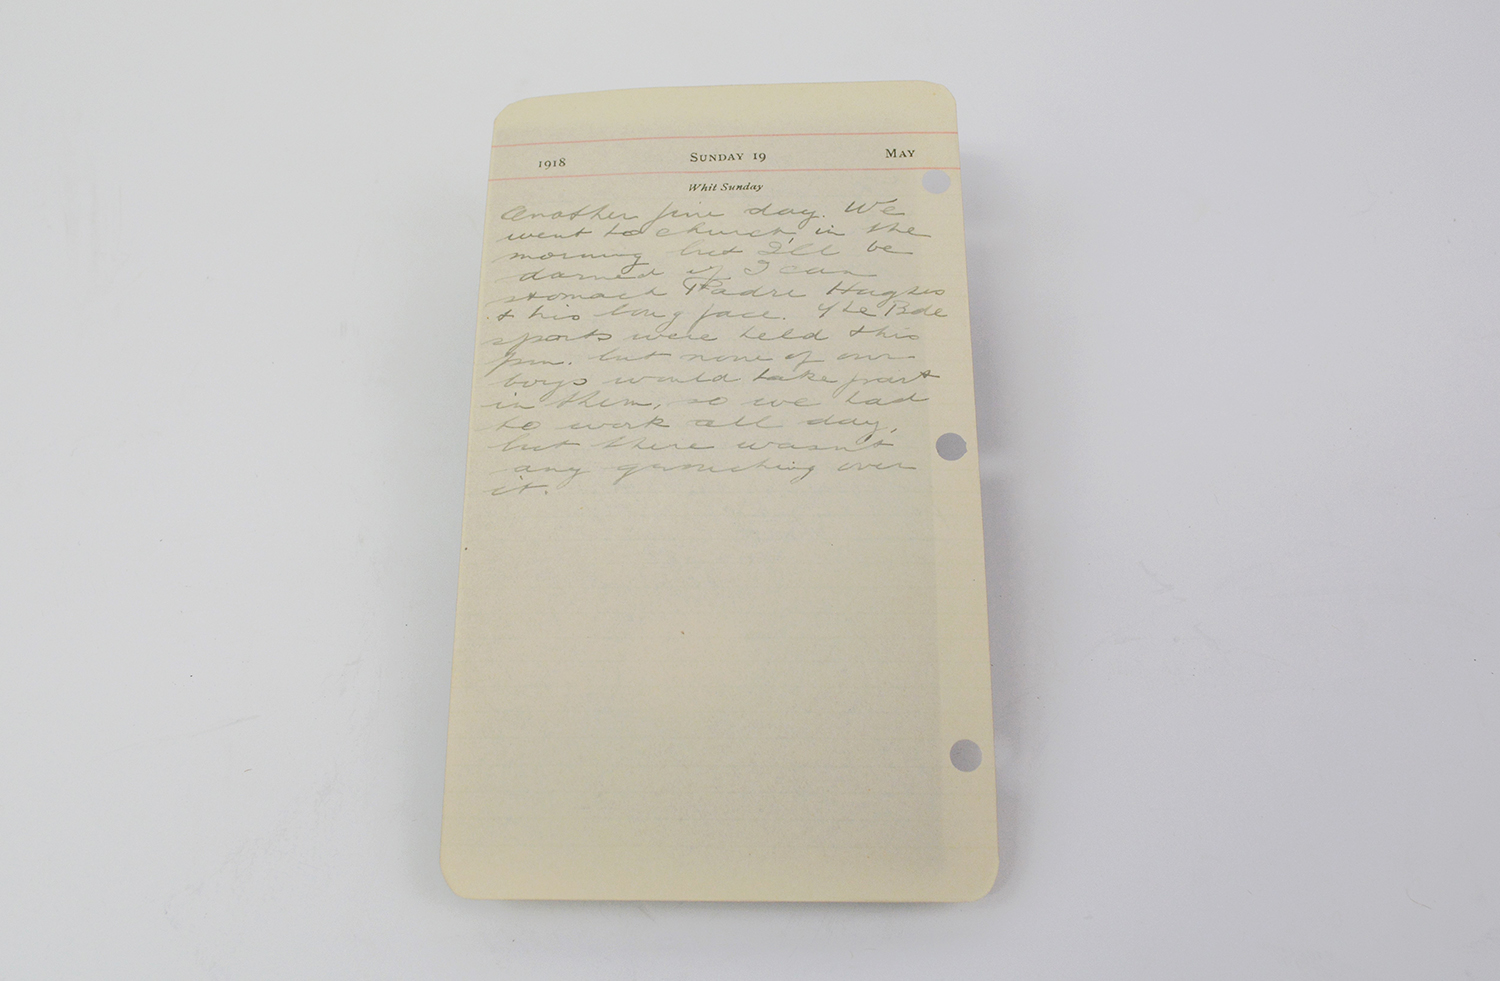 1918 SUNDAY 19 MAY
Whit Sunday
Another fine day. We
went to church in the
morning but I'll be
darned if I can
stomach Padre Hughes
& his long face. The Bde
sports were held this
pm. but none of our
boys would take part
in them, so we had
to work all day,
but there wasn't
any grouching over
it.